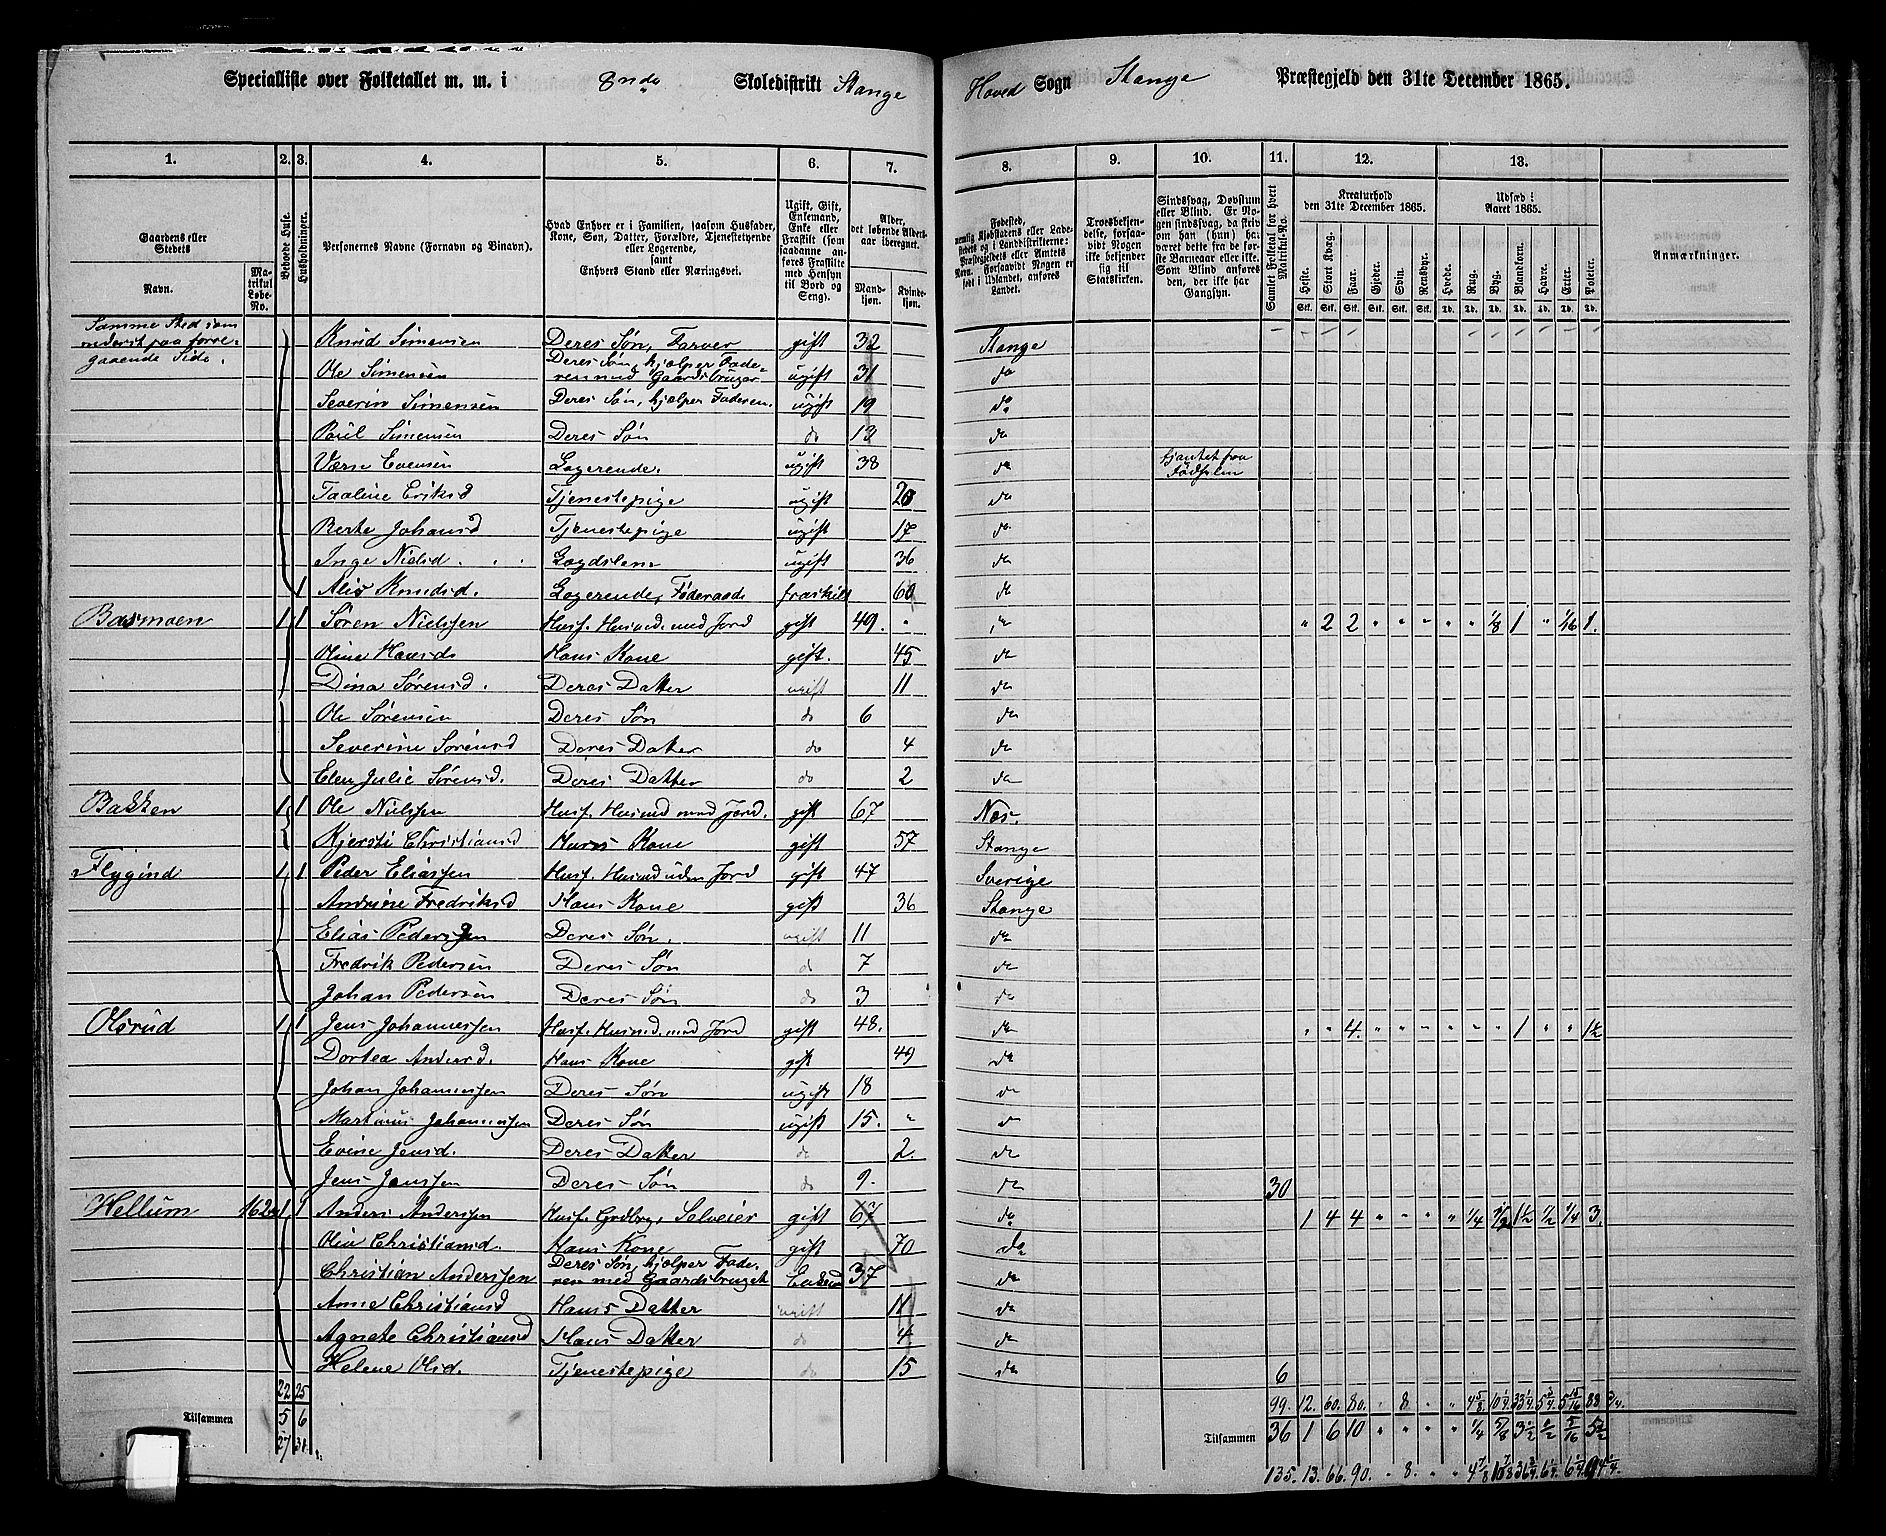 Specialliste over Folketallet m. m. i 8nde Skoledistrikt Stange Hoved Sogn Stange Præstegjeld den 31te December 1865.
1. 2. 3. 4. 5. 6. 7. 8. 9. 10. 11. 12. 13.
Gaardens eller Stedets Navn.
Matrikul Løbe-No.
Beboede Huse.
Husholdninger.
Personernes Navne (Fornavn og Binavn).
Hvad Enhver er i Familien, saasom Husfader, Kone, Søn, Datter, Forældre, Tjenestetyende eller Logerende, samt Enhvers Stand eller Næringsvei.
Ugift, Gift, Enkemand, Enke eller Fraskilt (som saadanne anføres Fraskilte med Hensyn til Bord og Seng).
Alder, det løbende Aldersaar iberegnet.
Mandkjøn. Kvindekjøn.
Fødested, nemlig Kjøbstadens eller Ladestedets og i Landdistrikterne: Præstegjeldets eller Amtets Navn. Forsaavidt Nogen er født i Udlandet, anføres Landet.
Troesbekjendelse, forsaavidt Nogen ikke bekjender sig til Statskirken.
Sindssvag, Døvstum eller Blind. Er Nogen sindssvag, da skriv om han (hun) har været dette fra de første Barneaar eller ikke. Som Blind anføres den, der ikke har Gangsyn.
Samlet Folketal for hvert Matrikul-No.
Kreaturhold den 31te December 1865.
Heste. Stort Kvæg. Faar. Gjeder. Svin. Rensdyr.
Udsæd i Aaret 1865.
Hvede. Rug. Byg. Blandkorn. Havre. Erter. Poteter.
Anmærkninger.
Samme Sted som
anderst paa forre-
gaaende Side.
Knud Simensen Deres Søn, Farver gift 32 Stange
Ole Simensen Deres Søn, hjælper Faderen med Gaardsbruget ugift 31 do
Severin Simensen Deres Søn, hjælper Faderen. ugift 19 do
Poul Simensen Deres Søn do 13 do
Evensen Logerende. ugift 38 do fra Fødselen
Eriksd Tjenestepige ugift 20 do
Berte Johansd Tjenestepige ugift 17 do
Inge Nielsd. ugift 36 do
1 Alis Knudsd. Logerende, Føderaads fraskilt 60 do
Basmoen 1 1 Søren Nielsen Husf. Husmd. med Jord gift 49. " do " 2 2 " " " " " 1/8 1 " 1/16 1.
Oline Hansd Hans Kone gift. 45 do
Dina Sørensd. Deres Datter ugift 11 do
Ole Sørensen Deres Søn do 6 do
Severine Sørensd Deres Datter do 4 do
Elen Julie Sørensd. Deres Datter do 2 do
Bakken 1 1 Ole Nielsen Husf. Husmd med Jord. gift 67 Næs.
Kjersti Christiansd Hans Kone gift 57 Stange
Flygind 1 1 Peder Eliassen Husf. Husmd uden Jord gift 47 Sverige
Andrine Fredriksd Hans Kone gift 36 Stange
Elias Pedersen Deres Søn. ugift 11 do
Fredrik Pedersen Deres Søn do 7 do
Johan Pedersen Deres Søn do 3 do
Olsrud 1 1 Jens Johannessen Husf. Husmd. med Jord gift 48. do " " 4. " " " " " " 1 " " 1½
Dortea Andersd. Hans Kone gift 49 do
Johan Johannessen Deres Søn ugift 18 do
Martinus Johannessen Deres Søn ugift 15. " do
Evine Jensd. Deres Datter do 2. do
Jens Jenssen Deres Søn do 9. do 30
Hellum 162 1 1 Anders Anderssen Husf. Grdbr. Selveier gift 67 do 1 4 4 " " " " 1/4 1/2 1½ 1/2 1/4 3.
Christiansd. Hans Kone gift 70 do
Christian Anderssen Deres Søn, hjælper Faderen med Gaardsbruget Enkemd 37 do
Anne Christiansd Hans Datter ugift 11 do
Agnete Christiansd Hans Datter do 4 do
Helene Olsd. Tjenestepige do 15 do 6
22 25 99. 12. 60. 80. " 8 " " 4 5/8 10 1/4 33 1/4 5 3/4 5 15/16 88 3/4.
Tilsammen 5 6 Tilsammen 36 1 6 10 " " " " 1/4 5/8 3½ 1/2 5/16 5½
27 31. 135. 13. 66. 90. " 8. " " 4 7/8 10 7/8 36 3/4 6 1/4 6 1/4 94 1/4.